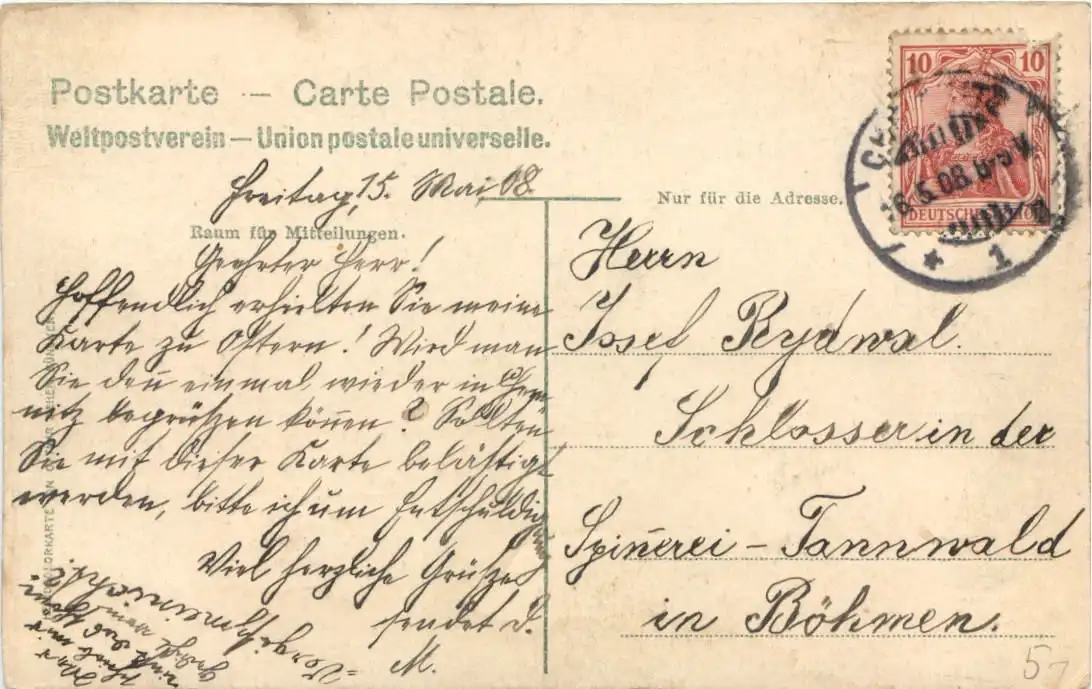 Postkarte – Carte Postale.
Weltpostverein – Union postale universelle.
Freitag, 15. Mai, 08.
Raum für Mitteilungen.
Geehrter Herr!
Hoffendlich erhielten Sie meine
Karte zu Ostern! Wird man
Sie den̄ einmal wieder in Chem
nitz begrüßen kön̄en? Sollten
Sie mit dieser Karte belästigt
werden, bitte ich um Entschuldig
ung
Viel herzliche Grüße
sendet d.
M.
10 10
DEUTSCHES
8.5.08. 6-9 V.
* 1
Nur für die Adresse.
Herrn
Josef Rydwal.
Schlosser in der
Spin̄erei – Tannwald
in Böhmen.
5